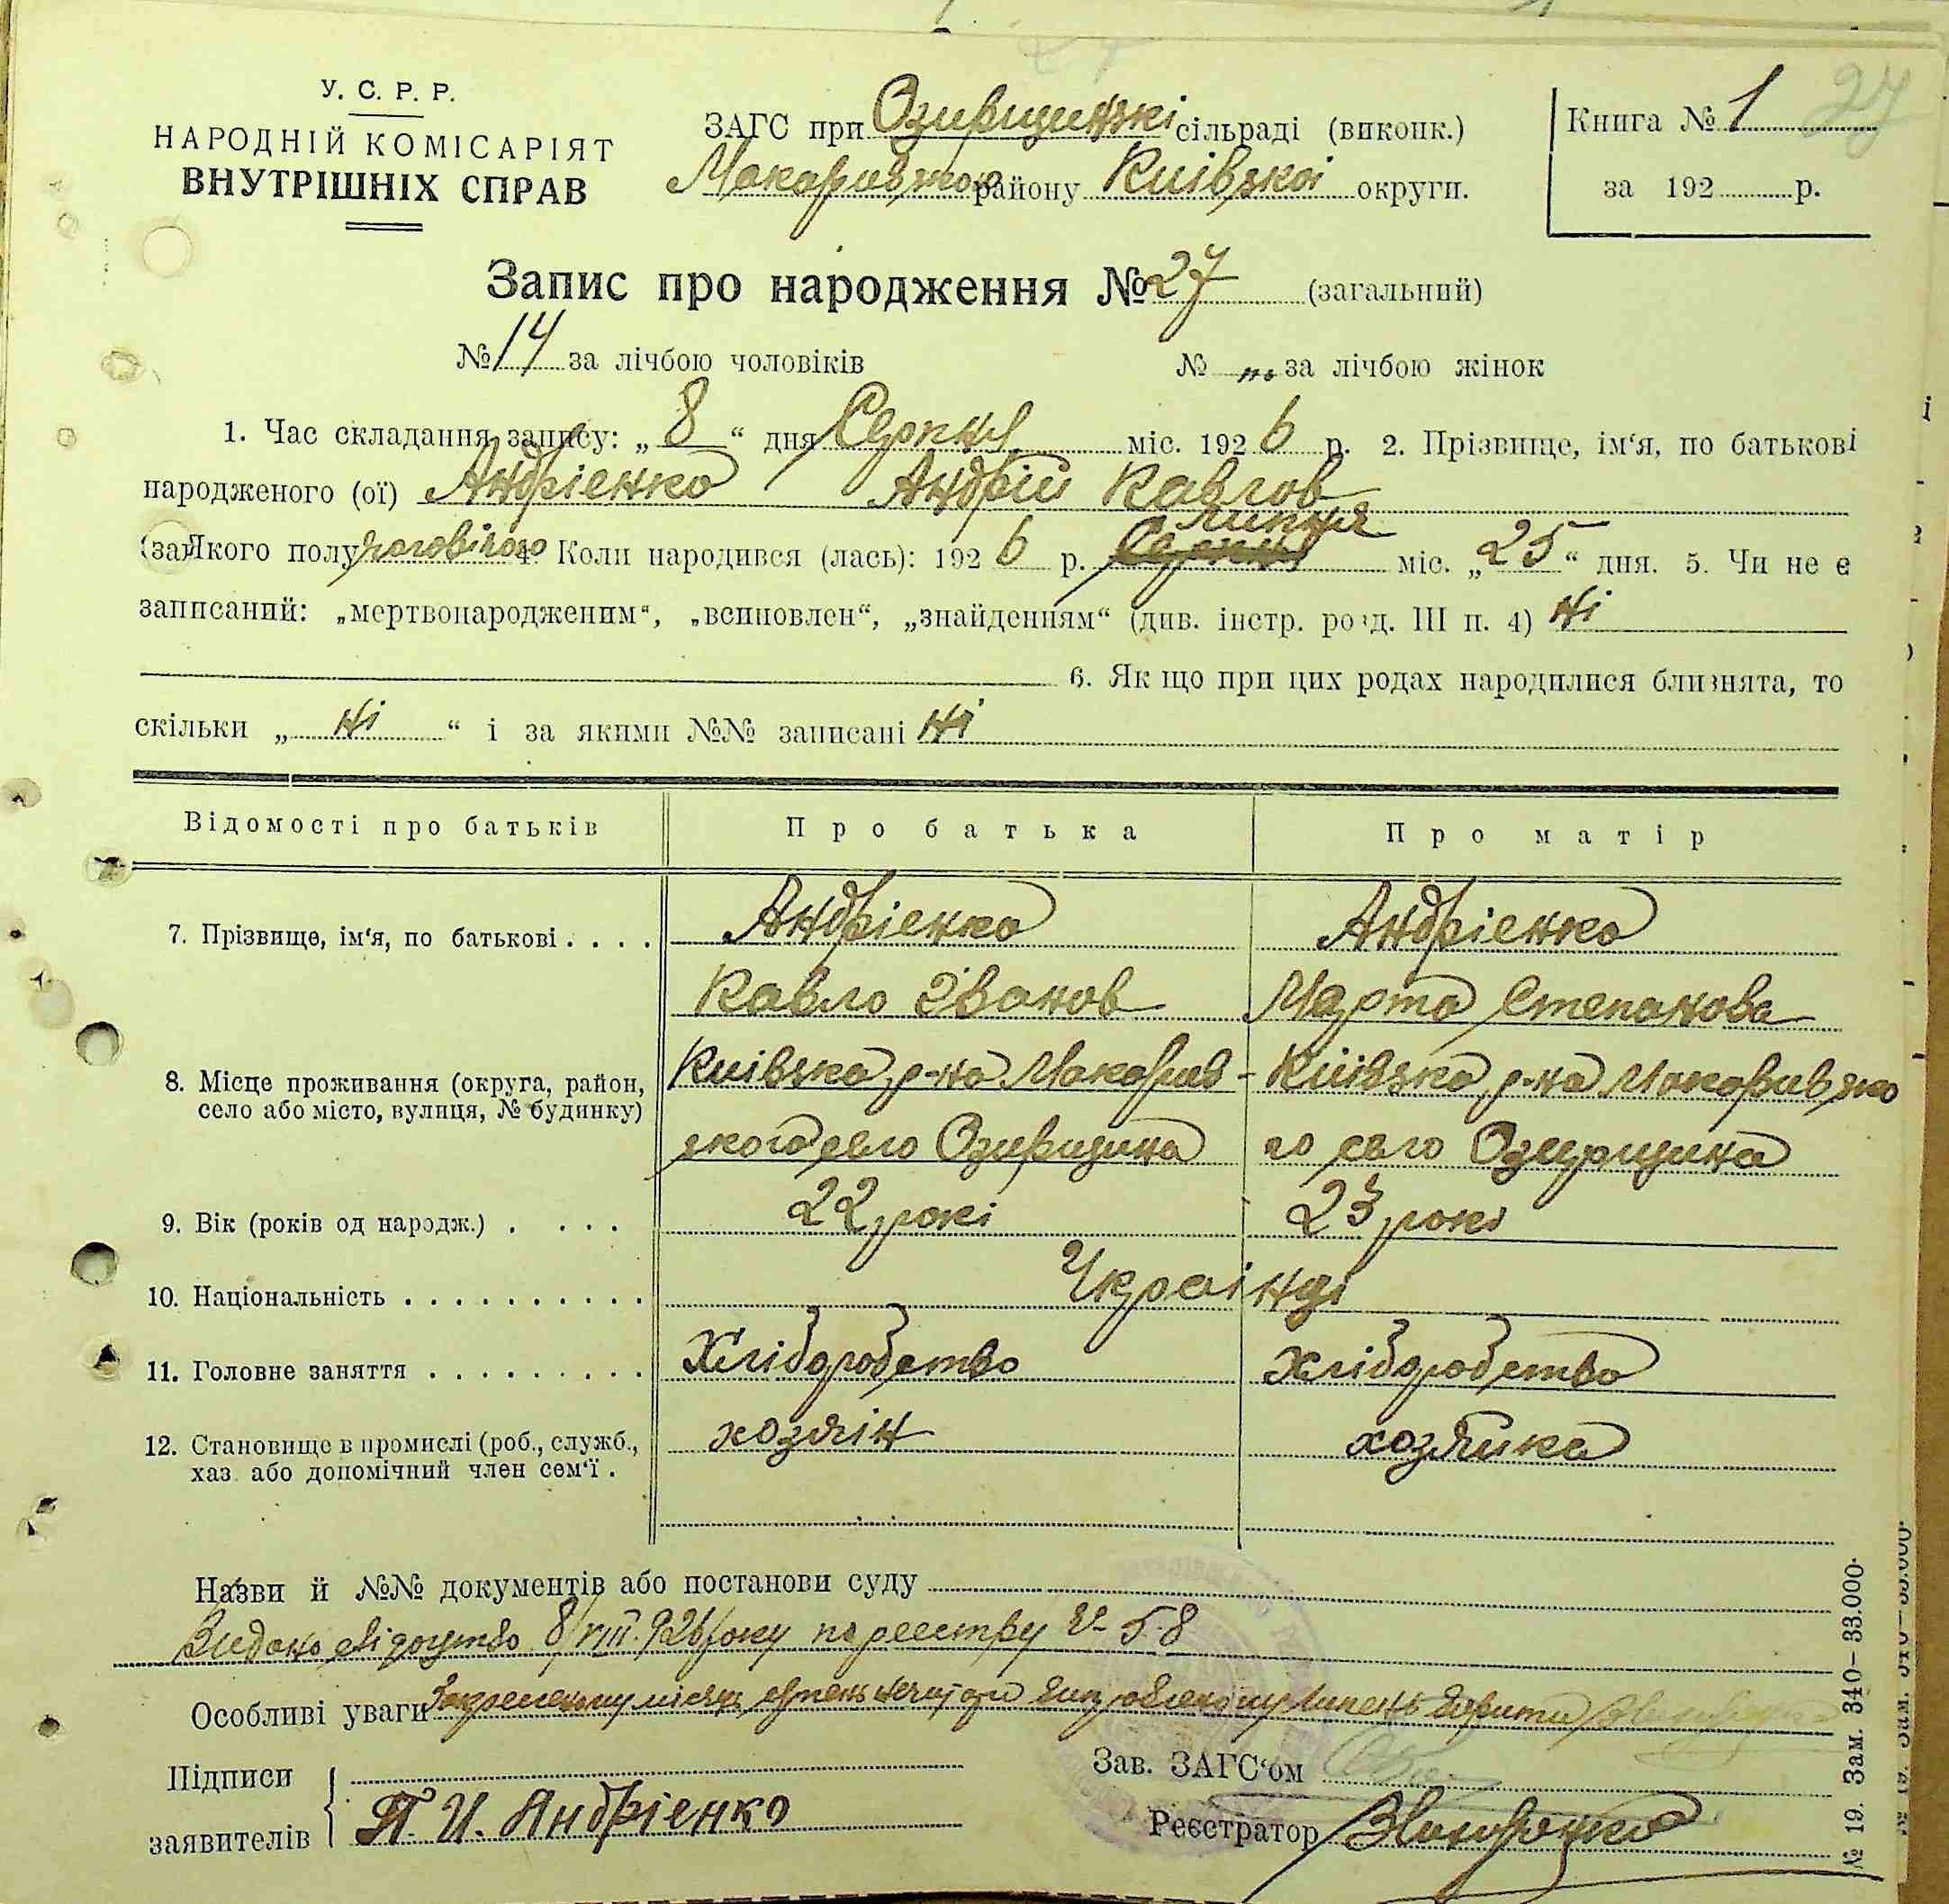 У. С. Р. Р.
НАРОДНІЙ КОМІСАРІЯТ
ВНУТРІШНІХ СПРАВ
ЗАГС при Озирщинскі сільраді (виконк.)
Макаривском району Киівскоі округи.
Книга № 1 27
за 192 р.
Запис про народження № 27 (загальний)
№ 14 за лічбою чоловіків № за лічбою жінок
1. Час складання запису: „ 8 “ дня Серпня міс. 192 6 р. 2. Прізвище, ім‘я, по батькові
народженого (ої) Андріенко Андрій Павлов
липня
(за) Якого полу чоловічого 4. Коли народився (лась): 192 6 р. Серпня міс. „ 25 “ дня. 5. Чи не є
записаний: „мертвонародженим“, „всиновлен“, „знайденням“ (див. інстр. розд. III п. 4) ні
6. Якщо при цих родах народилися близнята, то
скільки „ ні “ і за якими №№ записані ні
Відомості про батьків Про батька Про матір
7. Прізвище, ім‘я, по батькові . . . . Андріенко Андріенко
Павло Іванов Марта Степанова
8. Місце проживання (округа, район, Киівска р-на Макарив- Киівска р-на Макаривско
село або місто, вулиця, № будинку)
ского село Озирщина го село Озирщина
9. Вік (років од народж.) . . . . 22 рокі 23 рокі
10. Національність . . . . . . . . . . Украінці
11. Головне заняття . . . . . . . . . Хліборобство Хліборобство
12. Становище в промислі (роб., служб., хозяін хозяйка
хаз. або допомічний член сем‘ї .
Назви й №№ документів або постанови суду
Видано свідоцтво 8/VIII 926 року по реестру № 58
Особливі уваги місяць серпень липень вірити
Підписи
заявителів П. И. Андріенко
Зав. ЗАГС‘ом
Реєстратор
№ 19. Зам. 340—33.000.